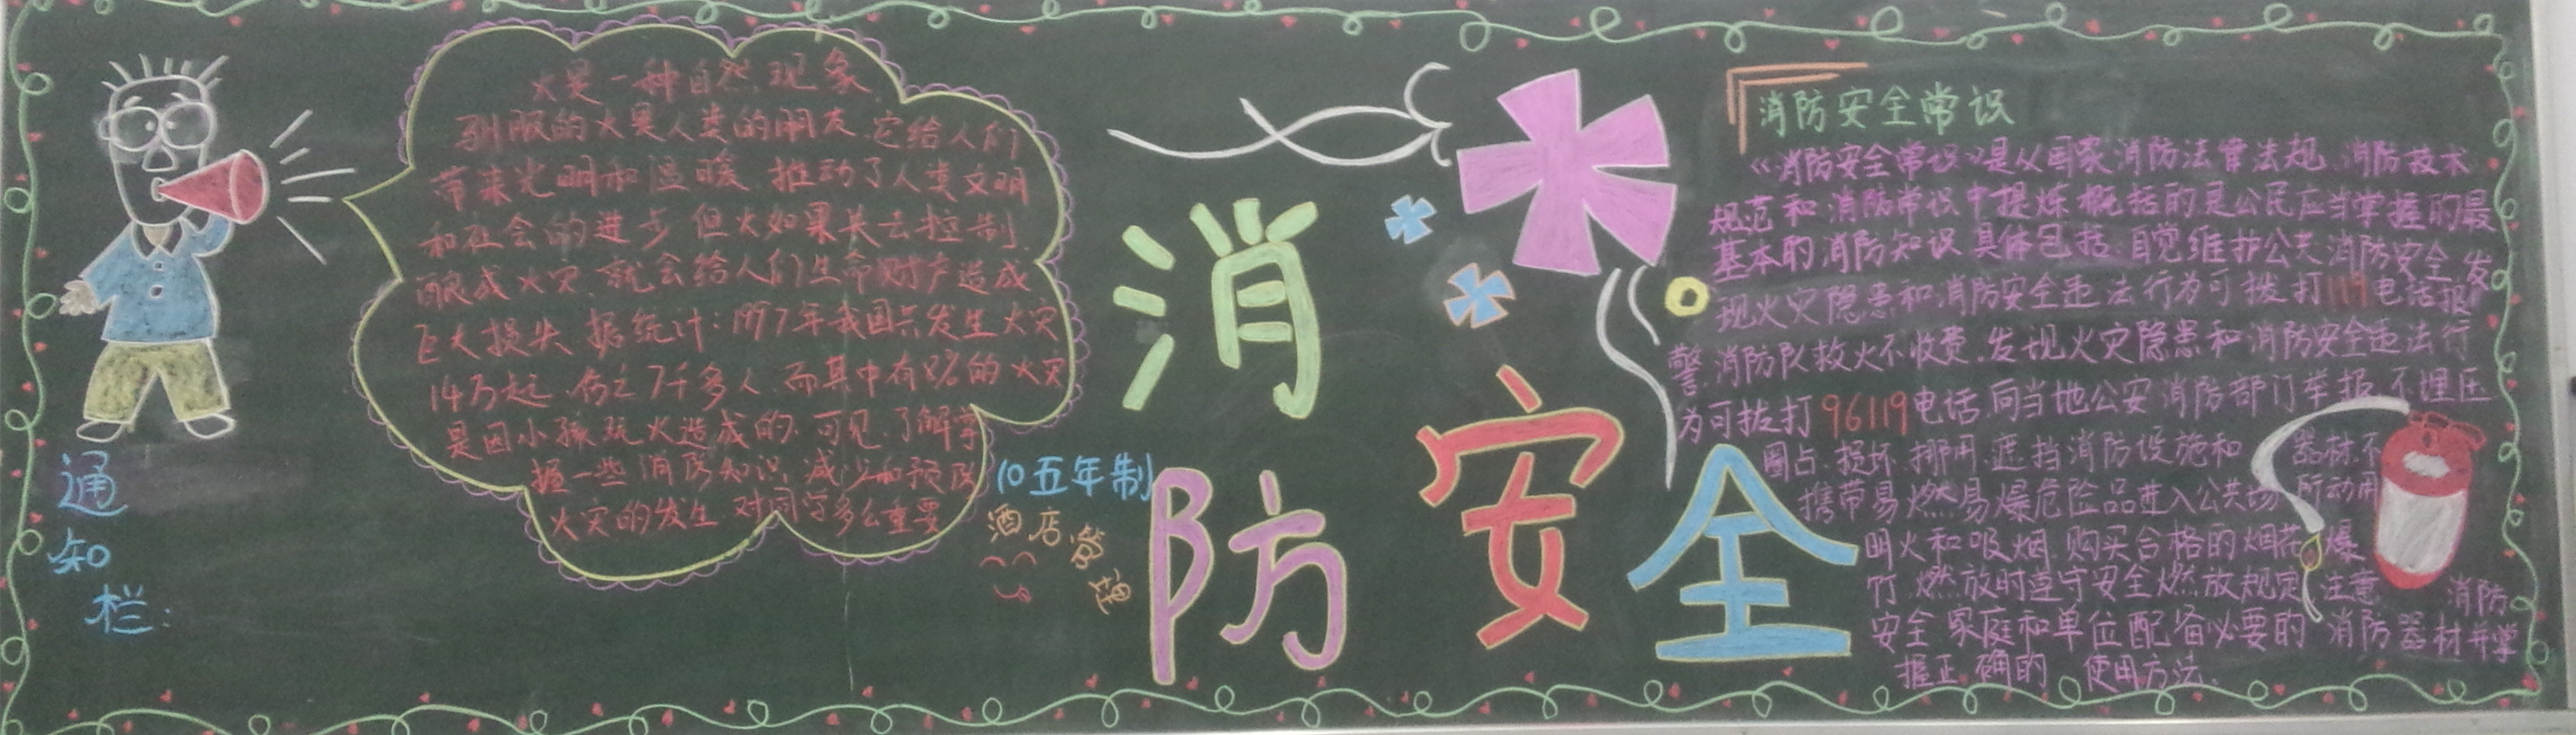 火是一种自然现象
驯服的火是人类的朋友.它给人们
带来光明和温暖.推动了人类文明
和社会的进步.但火如果失去控制.
酿成火灾.就会给人们生命财产造成
巨大损失.据统计:1997年我国共发生火灾
14万起.伤亡7千多人.而其中有的火灾
是因小孩玩火造成的.可见.了解掌
握一些消防知识.减少和预防
火灾的发生.对同学多么重要
通
知
栏:
10五年制
酒店营
消
防
安
全
消防安全常识
《消防安全常识》是从国家消防法管法规.消防技术
规范和消防常识中提炼概括的是公民应当掌握的最
基本的消防知识.具体包括.自觉维护公共消防安全.发
现火灾隐患和消防安全违法行为可拨打119电话报
警.消防队救火不收费.发现火灾隐患和消防安全违法行
为可拔打96119电话.向当地公安消防部门举报.不埋压
圈占.损坏.挪用.遮挡消防设施和器材.不
携带易燃易爆危险品进入公共场所动用
明火和吸烟.购买合格的烟花爆
竹.燃放时遵守安全燃放规定.注意消防
安全.家庭和单位配备必要的消防器材并掌
握正确的使用方法.